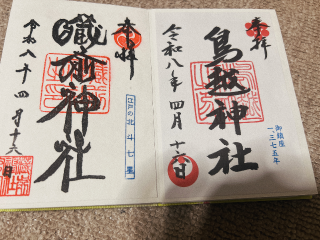 奉拝
鳥越神社
令和八年 四月 十六日
御鎮座
一三七五年
奉拝
江戸の北斗七星
藏前神社
令和八年四月十六日